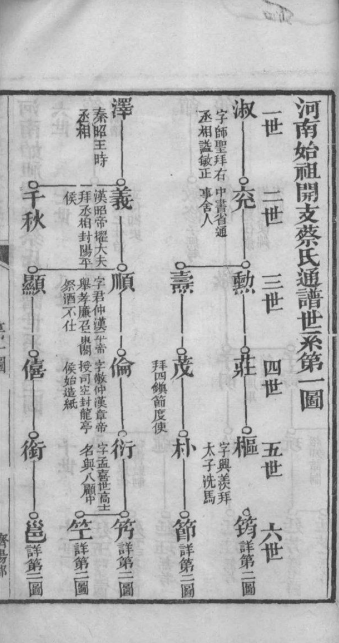 河南始祖開支蔡氏通譜世系第一圖
一世
二世
三世
四世
五世
六世
淑
字師聖拜右
丞相謚敏正
充
中書省通
事舍人
勲
莊
樞
字興羨拜
太子洗馬
筠
詳第二圖
壽
茂
拜四鎮節度使
朴
節
詳第三圖
澤
秦昭王時
丞相
義
漢昭帝擢大夫
拜丞相封陽平
侯
順
字君仲漢平帝
舉孝廉召
祭酒不仕
倫
字敬仲漢章帝
授司空封龍亭
侯始造紙
衍
字孟喜世高士
名與八顧中
笍
詳第二圖
笁
詳第二圖
千秋
顯
僖
衡
邕
詳第二圖